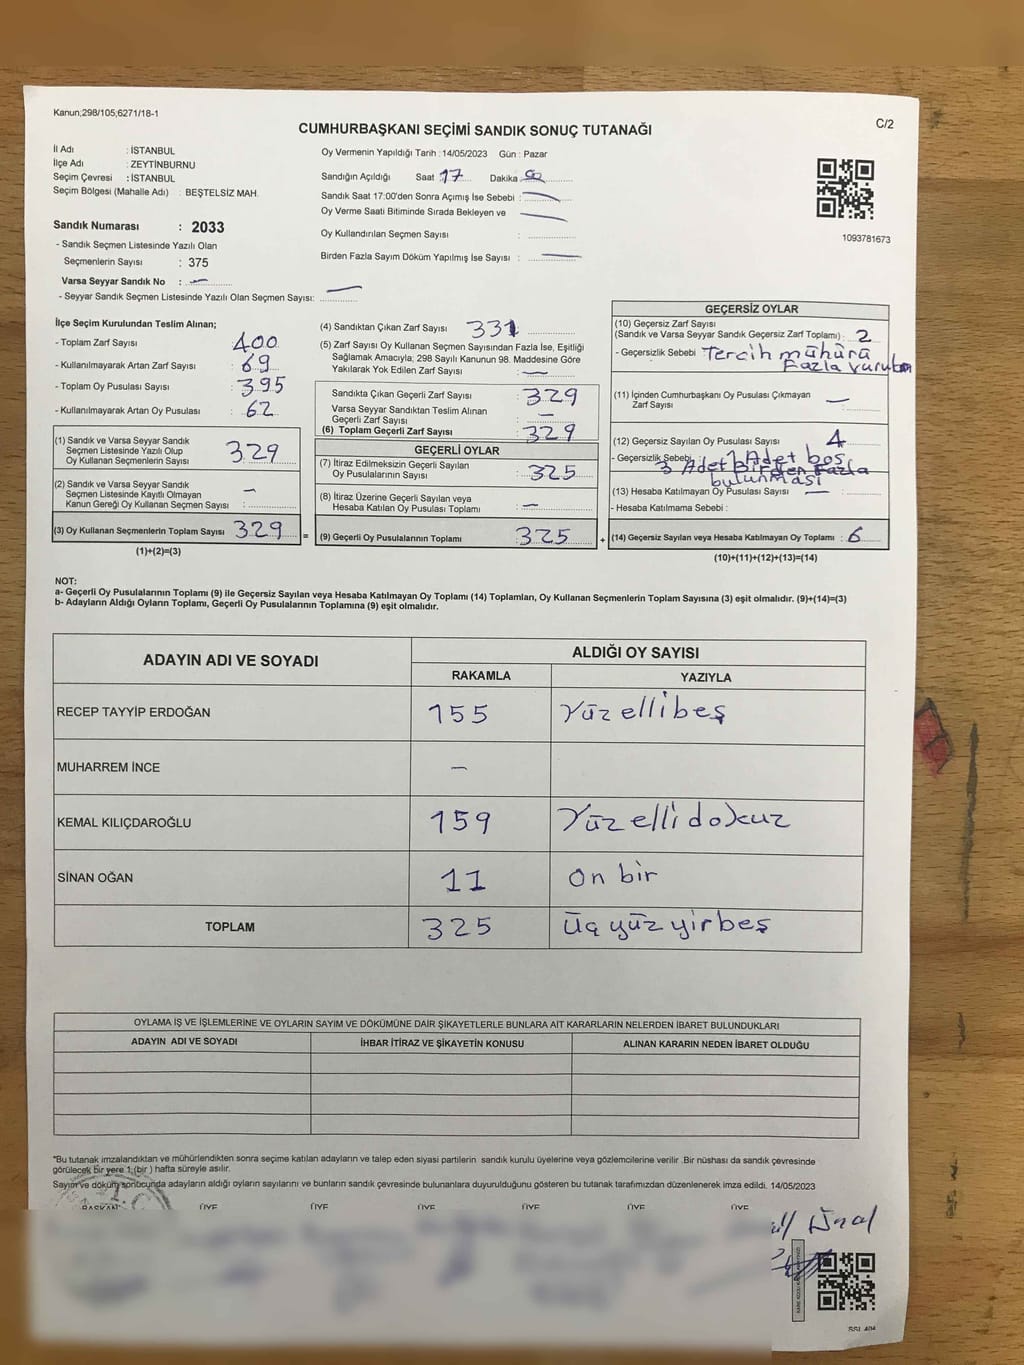 Kanun;298/105;6271/18-1
C/2
CUMHURBAŞKANI SEÇİMİ SANDIK SONUÇ TUTANAĞI
İl Adı : İSTANBUL
İlçe Adı : ZEYTİNBURNU
Seçim Çevresi : İSTANBUL
Seçim Bölgesi (Mahalle Adı) : BEŞTELSİZ MAH.
Sandık Numarası : 2033
- Sandık Seçmen Listesinde Yazılı Olan
Seçmenlerin Sayısı : 375
Varsa Seyyar Sandık No : —
- Seyyar Sandık Seçmen Listesinde Yazılı Olan Seçmen Sayısı: —
Oy Vermenin Yapıldığı Tarih :14/05/2023 Gün : Pazar
Sandığın Açıldığı Saat :17 Dakika
Sandık Saat 17:00'den Sonra Açımış İse Sebebi : —
Oy Verme Saati Bitiminde Sırada Bekleyen ve —
Oy Kullandırılan Seçmen Sayısı :
Birden Fazla Sayım Döküm Yapılmış İse Sayısı : —
1093781673
İlçe Seçim Kurulundan Teslim Alınan;
- Toplam Zarf Sayısı : 400
- Kullanılmayarak Artan Zarf Sayısı : 69
- Toplam Oy Pusulası Sayısı : 395
- Kullanılmayarak Artan Oy Pusulası : 62
(1) Sandık ve Varsa Seyyar Sandık
Seçmen Listesinde Yazılı Olup
Oy Kullanan Seçmenlerin Sayısı : 329
(2) Sandık ve Varsa Seyyar Sandık
Seçmen Listesinde Kayıtlı Olmayan
Kanun Gereği Oy Kullanan Seçmen Sayısı : —
(3) Oy Kullanan Seçmenlerin Toplam Sayısı : 329 =
(1)+(2)=(3)
(4) Sandıktan Çıkan Zarf Sayısı 331
(5) Zarf Sayısı Oy Kullanan Seçmen Sayısından Fazla İse, Eşitliği
Sağlamak Amacıyla; 298 Sayılı Kanunun 98. Maddesine Göre
Yakılarak Yok Edilen Zarf Sayısı : —
Sandıkta Çıkan Geçerli Zarf Sayısı : 329
Varsa Seyyar Sandıktan Teslim Alınan
Geçerli Zarf Sayısı : —
(6) Toplam Geçerli Zarf Sayısı : 329
GEÇERLİ OYLAR
(7) İtiraz Edilmeksizin Geçerli Sayılan
Oy Pusulalarının Sayısı : 325
(8) İtiraz Üzerine Geçerli Sayılan veya
Hesaba Katılan Oy Pusulası Toplamı : —
(9) Geçerli Oy Pusulalarının Toplamı : 325 +
GEÇERSİZ OYLAR
(10) Geçersiz Zarf Sayısı
(Sandık ve Varsa Seyyar Sandık Geçersiz Zarf Toplamı) : 2
- Geçersizlik Sebebi : Tercih mühürü
Fazla
(11) İçinden Cumhurbaşkanı Oy Pusulası Çıkmayan —
Zarf Sayısı
(12) Geçersiz Sayılan Oy Pusulası Sayısı : 4
- Geçersizlik Sebebi : 1 Adet boş
3 Adet Birden Fazla
bulunması
(13) Hesaba Katılmayan Oy Pusulası Sayısı : —
- Hesaba Katılmama Sebebi :
(14) Geçersiz Sayılan veya Hesaba Katılmayan Oy Toplamı : 6
(10)+(11)+(12)+(13)=(14)
NOT:
a- Geçerli Oy Pusulalarının Toplamı (9) ile Geçersiz Sayılan veya Hesaba Katılmayan Oy Toplamı (14) Toplamları, Oy Kullanan Seçmenlerin Toplam Sayısına (3) eşit olmalıdır. (9)+(14)=(3)
b- Adayların Aldığı Oyların Toplamı, Geçerli Oy Pusulalarının Toplamına (9) eşit olmalıdır.
ADAYIN ADI VE SOYADI
ALDIĞI OY SAYISI
RAKAMLA YAZIYLA
RECEP TAYYİP ERDOĞAN 155 Yüz elli beş
MUHARREM İNCE —
KEMAL KILIÇDAROĞLU 159 Yüz elli dokuz
SİNAN OĞAN 11 on bir
TOPLAM 325 Üç yüz yirbeş
OYLAMA İŞ VE İŞLEMLERİNE VE OYLARIN SAYIM VE DÖKÜMÜNE DAİR ŞİKAYETLERLE BUNLARA AİT KARARLARIN NELERDEN İBARET BULUNDUKLARI
ADAYIN ADI VE SOYADI İHBAR İTİRAZ VE ŞİKAYETİN KONUSU ALINAN KARARIN NEDEN İBARET OLDUĞU
*Bu tutanak imzalandıktan ve mühürlendikten sonra seçime katılan adayların ve talep eden siyasi partilerin sandık kurulu üyelerine veya gözlemcilerine verilir .Bir nüshası da sandık çevresinde
görülecek bir yere 1 (bir ) hafta süreyle asılır.
Sayım ve döküm sonucunda adayların aldığı oyların sayılarını ve bunların sandık çevresinde bulunanlara duyurulduğunu gösteren bu tutanak tarafımızdan düzenlenerek imza edildi. 14/05/2023
BAŞKAN ÜYE ÜYE ÜYE ÜYE ÜYE ÜYE
Ünal